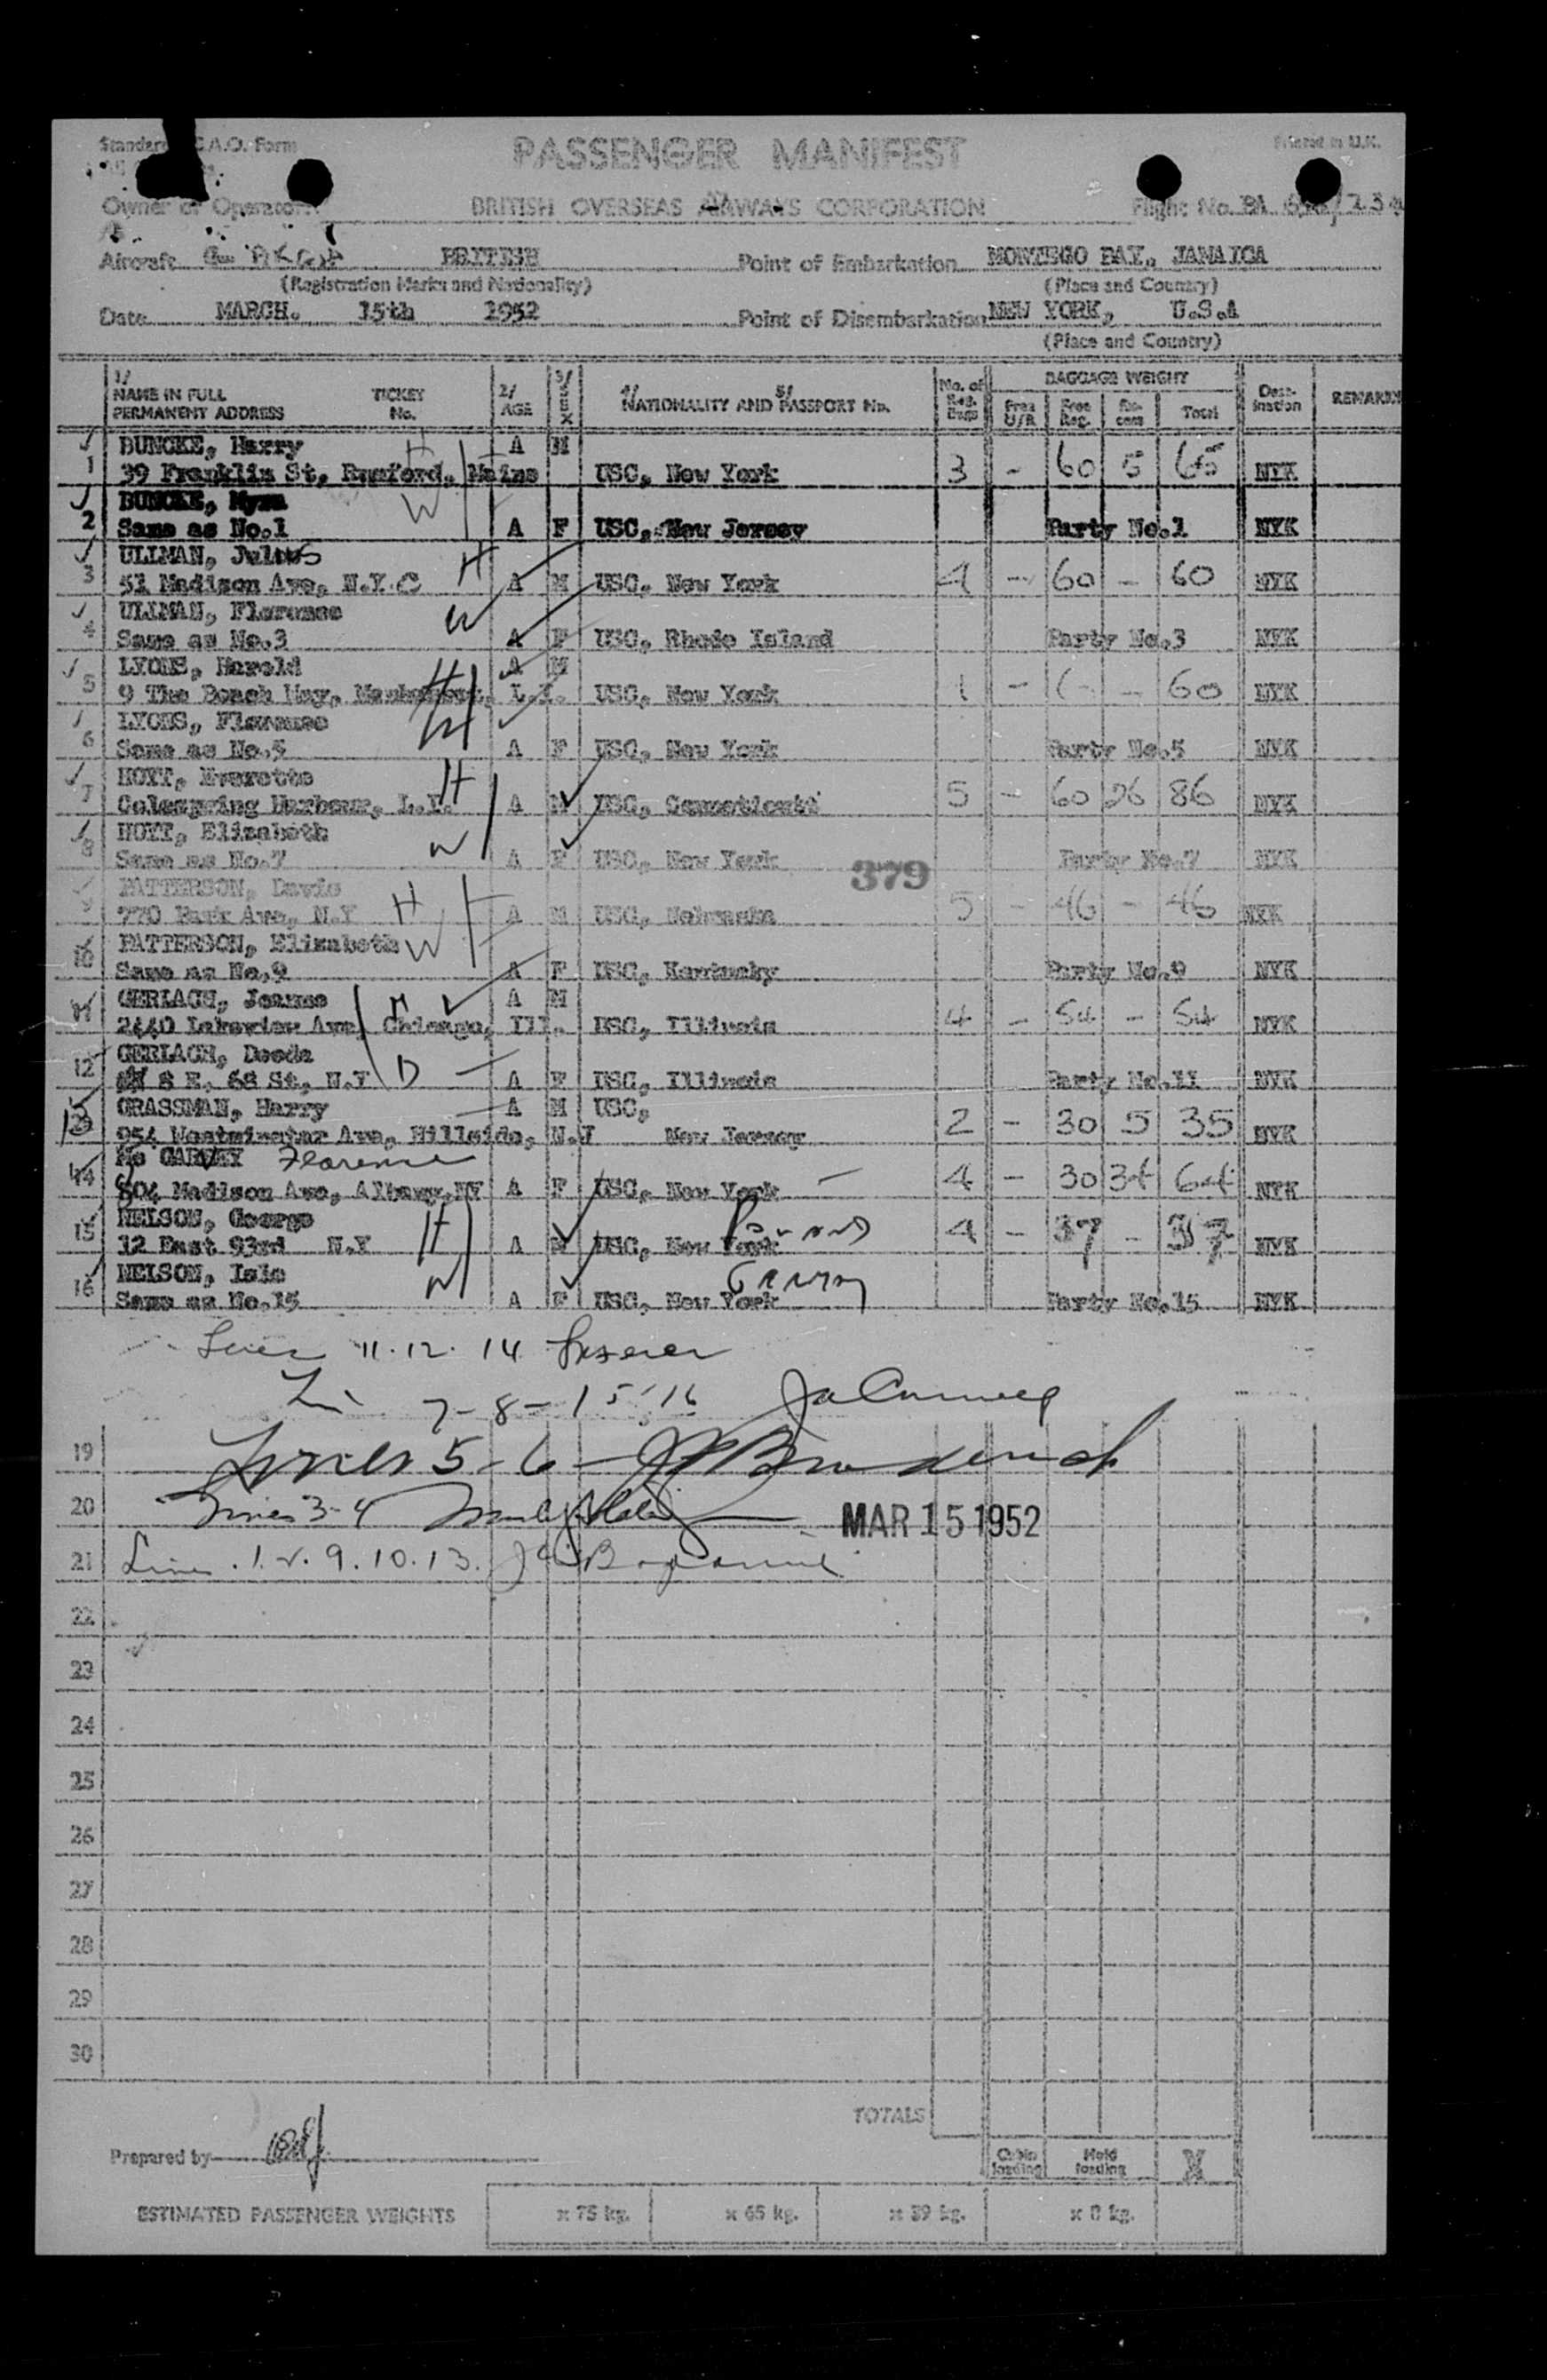 Standard I.C.A.O. Form
PASSENGER MANIFEST
Printed in U.K.
Owner or Operator
BRITISH OVERSEAS AIRWAYS CORPORATION
Flight No. BA
Aircraft BRITISH Point of Embarkation MONTEGO BAY, JAMAICA
(Registration Marks and Nationality) (Place and Country)
Date MARCH. 15th 1952 Point of Disembarkation NEW YORK, U.S.A
(Place and Country)
1/ NAME IN FULL PERMANENT ADDRESS TICKET No. 2/ AGE 3/ SEX 4/ 5/ NATIONALITY AND PASSPORT No. No. of Reg. Bags BAGGAGE WEIGHT Free U/R Free Reg. Ex-cess Total Dest-ination REMARKS
DUNCKE, Harry H A M
1 39 Franklin St, Rumford, Maine USC, New York 3 - 60 5 65 NYK
DUNCKE, W
2 Same as No.1 A F USC, New Jersey Party No.1 NYK
ULLMAN, Julius H
3 51 Madison Ave, N.Y.C A M USC, New York 4 - 60 - 60 NYK
ULLMAN, Florence W
4 Same as No.3 A F USC, Rhode Island Party No.3 NYK
LYONS, Harold H A M
5 9 The Beach Way, L.I. USC, New York 1 - - 60 NYK
LYONS, Florence W
6 Same as No.5 A F USC, New York Party No.5 NYK
HOYT, Everette H
7 Harbour, L.I. A M USC, 5 - 60 26 86 NYK
HOYT, Elizabeth W
8 Same as No.7 A F USC, New York Party No.7 NYK
379
PATTERSON, Davis H
9 770 Park Ave, N.Y A M USC, Nebraska 5 - 46 - 46 NYK
PATTERSON, Elizabeth W
10 Same as No.9 A F USC, Kentucky Party No.9 NYK
GERLACH, H A M
11 2440 Lakeview Ave, Chicago, Ill. USC, Illinois 4 - 54 - 54 NYK
GERLACH, Deeda
12 8 E. 68 St, N.Y D A F USC, Illinois Party No.11 NYK
GRASSMAN, Harry A M USC,
13 954 Westminster Ave, Hillside, N.J New Jersey 2 - 30 5 35 NYK
Mc GARVEY Florence
14 804 Madison Ave, Albany, NY A F USC, New York 4 - 30 34 64 NYK
NELSON, George H
15 12 East 93rd N.Y A M USC, New York 4 - 37 - 37 NYK
NELSON, W
16 Same as No.15 A F USC, New York Party No.15 NYK
11.12.14
7-8-15-16
19 Lines 5-6
20 Lines 3-4
MAR 15 1952
21 Lines 1.2.9.10.13.
22
23
24
25
26
27
28
29
30
TOTALS
Prepared by
Cabin loading Hold loading
ESTIMATED PASSENGER WEIGHTS x 75 kg. x 65 kg. x 39 kg. x 8 kg.